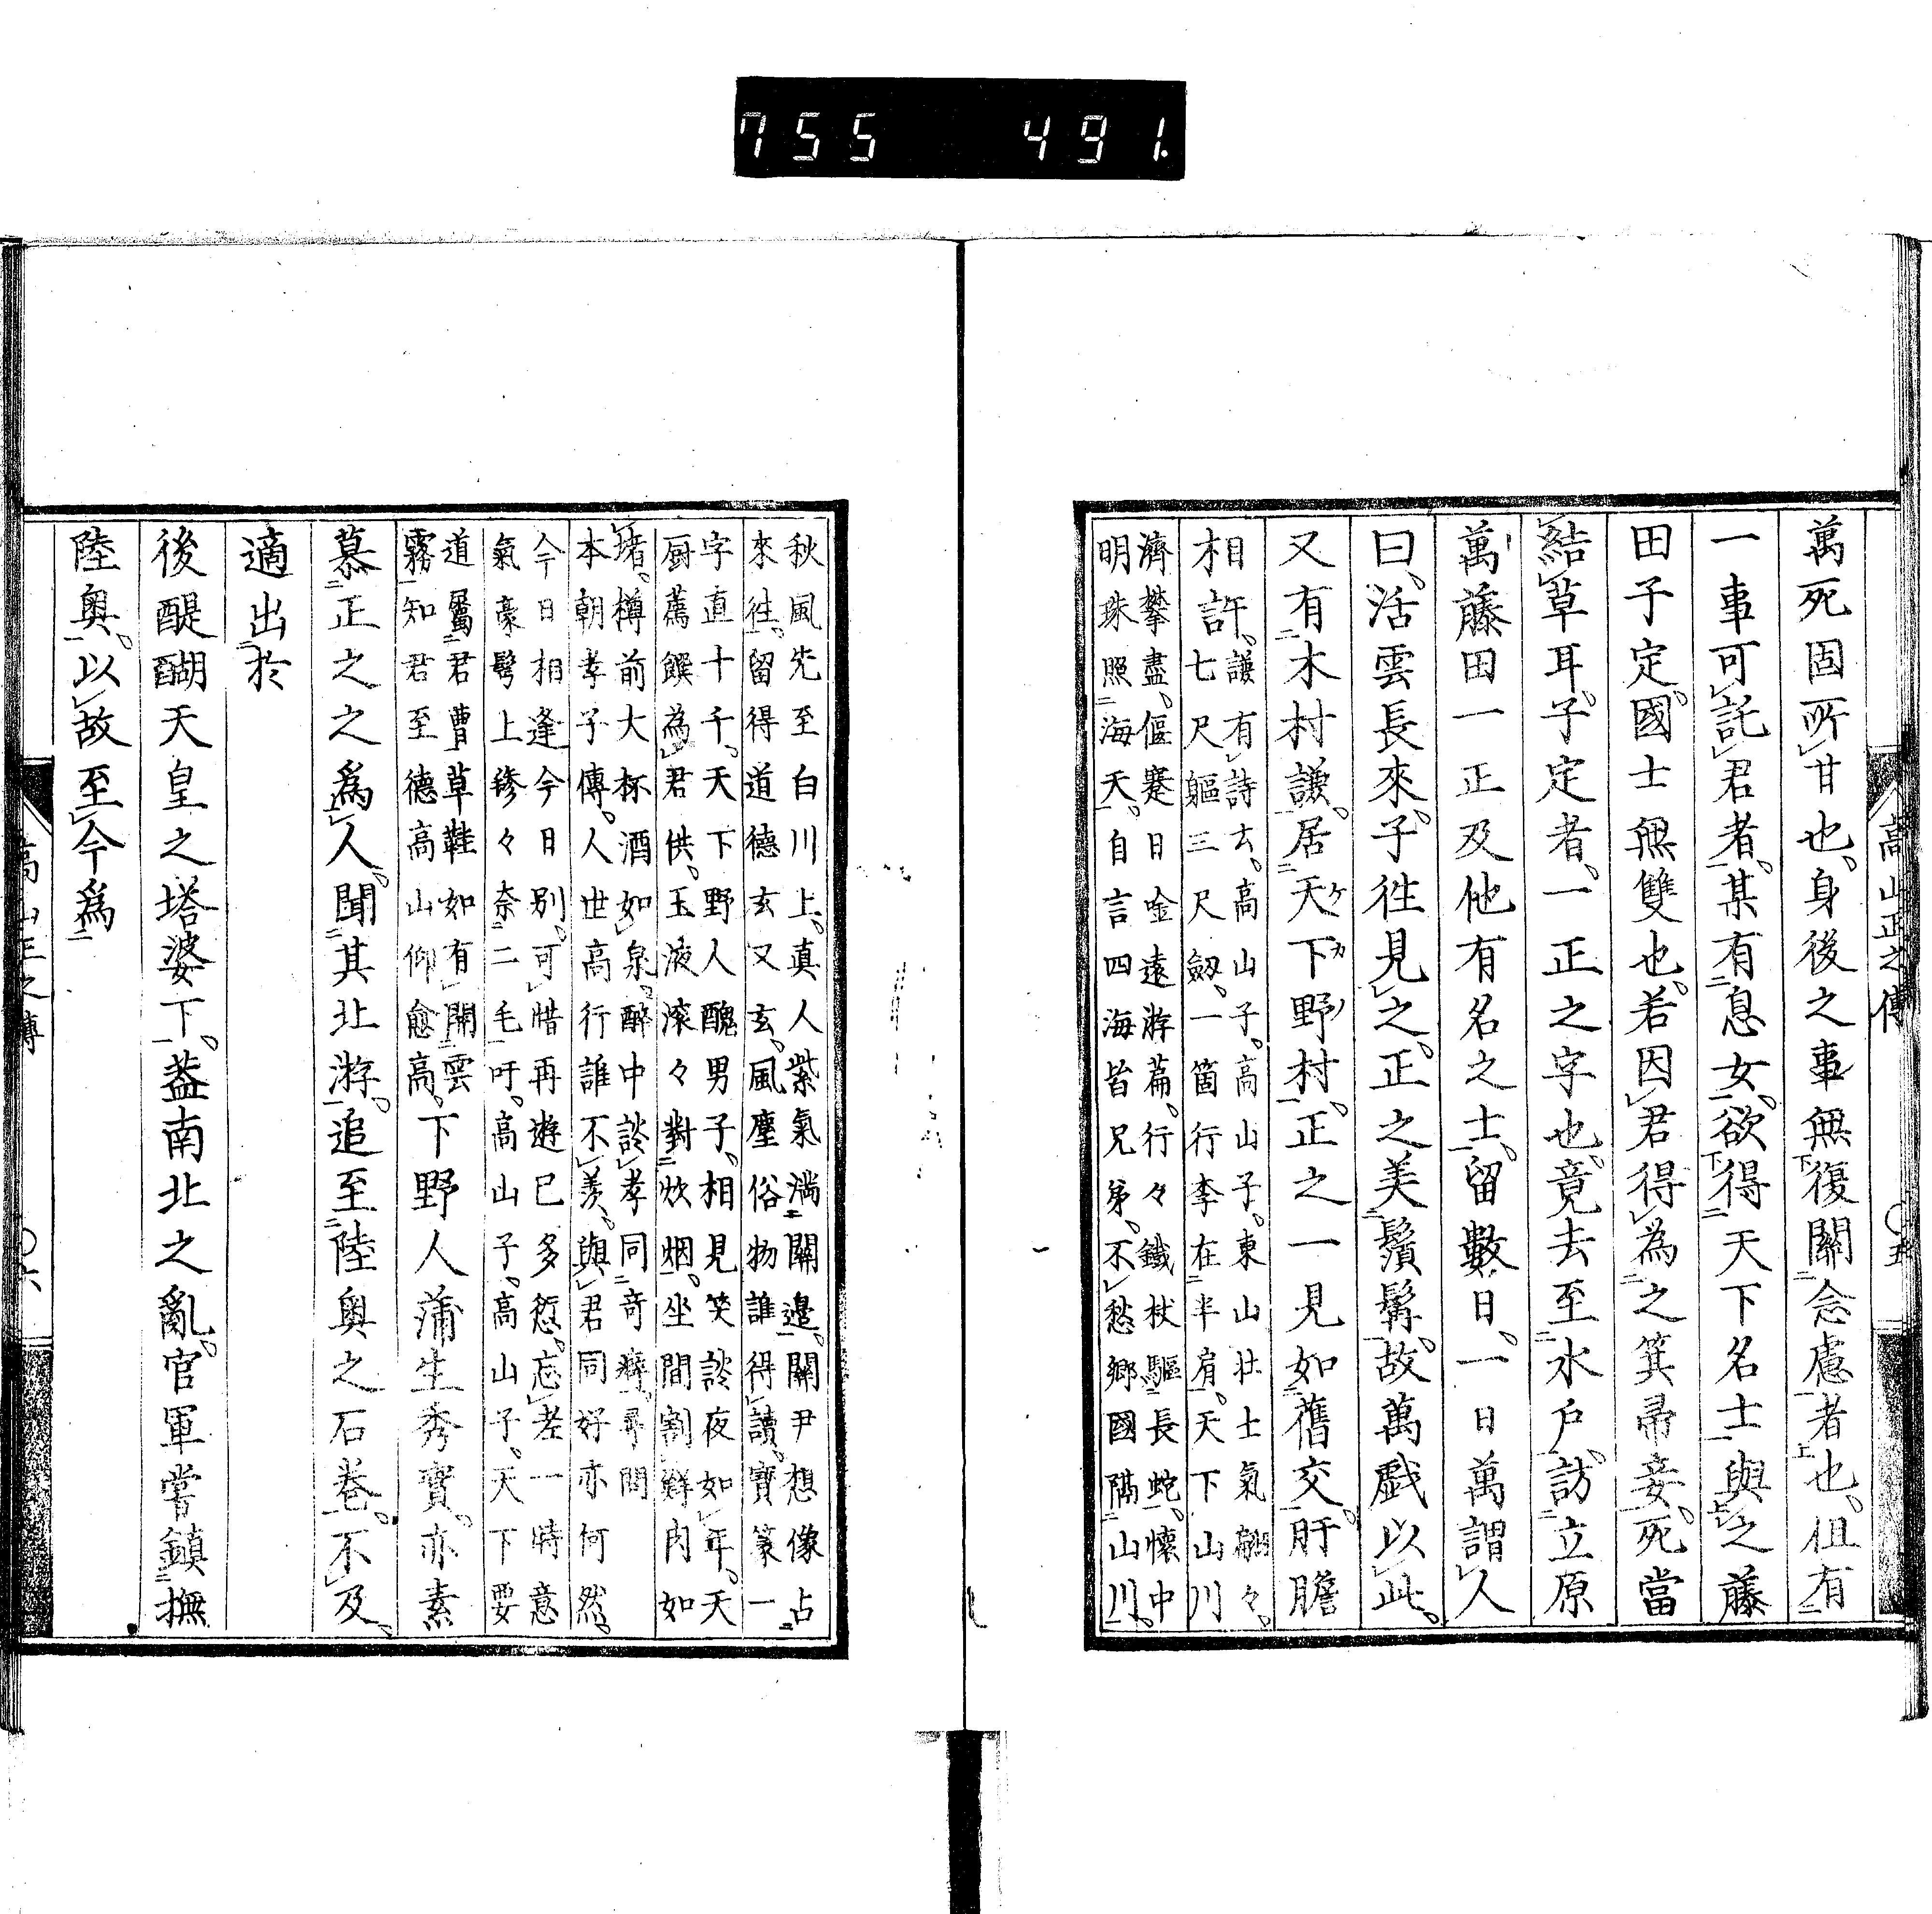 755 491.
高山正之傳 〇五
萬死固所甘也。身後之事無復關念慮者也。但有
一事可託君者。某有息女、欲得天下名士與之。藤
田子定。國士無雙也。若因君得為之箕帚妾。死當
結草耳。子定者、一正之字也。竟去至水戶、訪立原
萬藤田一正及他有名之士。留數日、一日萬謂人
曰、活雲長來。子往見之。正之美鬚髯。故萬戯以此。
又有木村謙。居天下野村。正之一見如舊交。肝膽
相許。謙有詩云。高山子。高山子。東山壯士氣翩々。
七尺軀三尺劔、一箇行李在半肩。天下山川
濟攀盡、偃蹇日唫遠游篇。行々鐵杖驅長蛇、懷中
明珠照海天。自言四海皆兄弟、不愁鄉國隔山川。
秋風先至白川上。真人紫氣滿關邉。關尹想像占
來徃。留得道德玄又玄。風塵俗物誰得讀。寳篆一
字直十千。天下野人醜男子。相見笑談夜如年。天
厨薦饌為君供。玉液滚々對炊烟。坐間割鮮肉如
堵。樽前大杯酒如泉。醉中談孝同奇癖、尋問
本朝孝子傳。人世高行誰不羨、與君同好亦何然。
今日相逢今日別。可惜再遊已多愆。忘老一時意
氣豪髩上毿々奈二毛吁。高山子。高山子。天下要
道屬君曹草鞋如有開雲
霧知君至德高山仰愈高。下野人蒲生秀實。亦素
慕正之之為人。聞其北游。追至陸奧之石巻。不及。
適出於
後醍醐天皇之塔婆下。蓋南北之亂。官軍嘗鎮撫
陸奧。以故至今為
高山正之傳 〇六